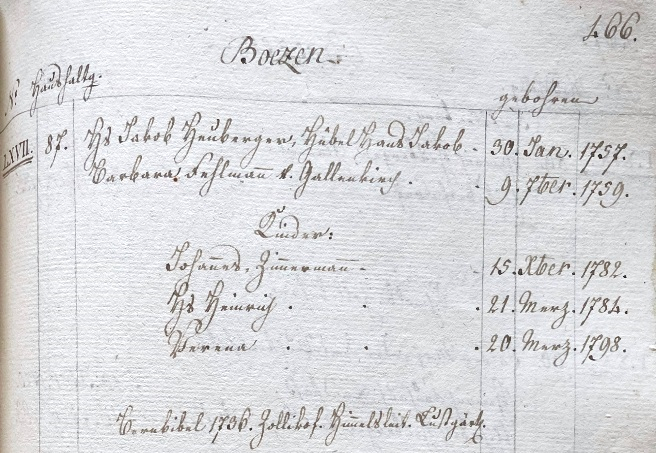 466.
Boezen.
N.º Haushaltg.
gebohren
LXVII. 87. Hs Jakob Heuberger, Hübel Hans Jakobs. 30. Jan. 1757.
Barbara Fehlmañ v. Gallenkirch. 9. 7ber. 1759.
Kinder:
Johañes, Zimmermañ 15. Xber. 1782.
Hs Heinrich 21. Merz. 1784.
Verena 20. Merz. 1798.
Bernbibel 1736. Zollikof. Himelsleit. Lustgärtl.